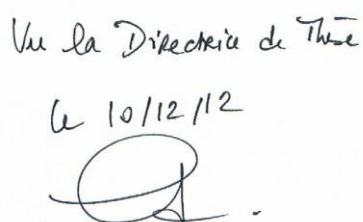 Vu la Directrice de Thèse
le 10/12/12